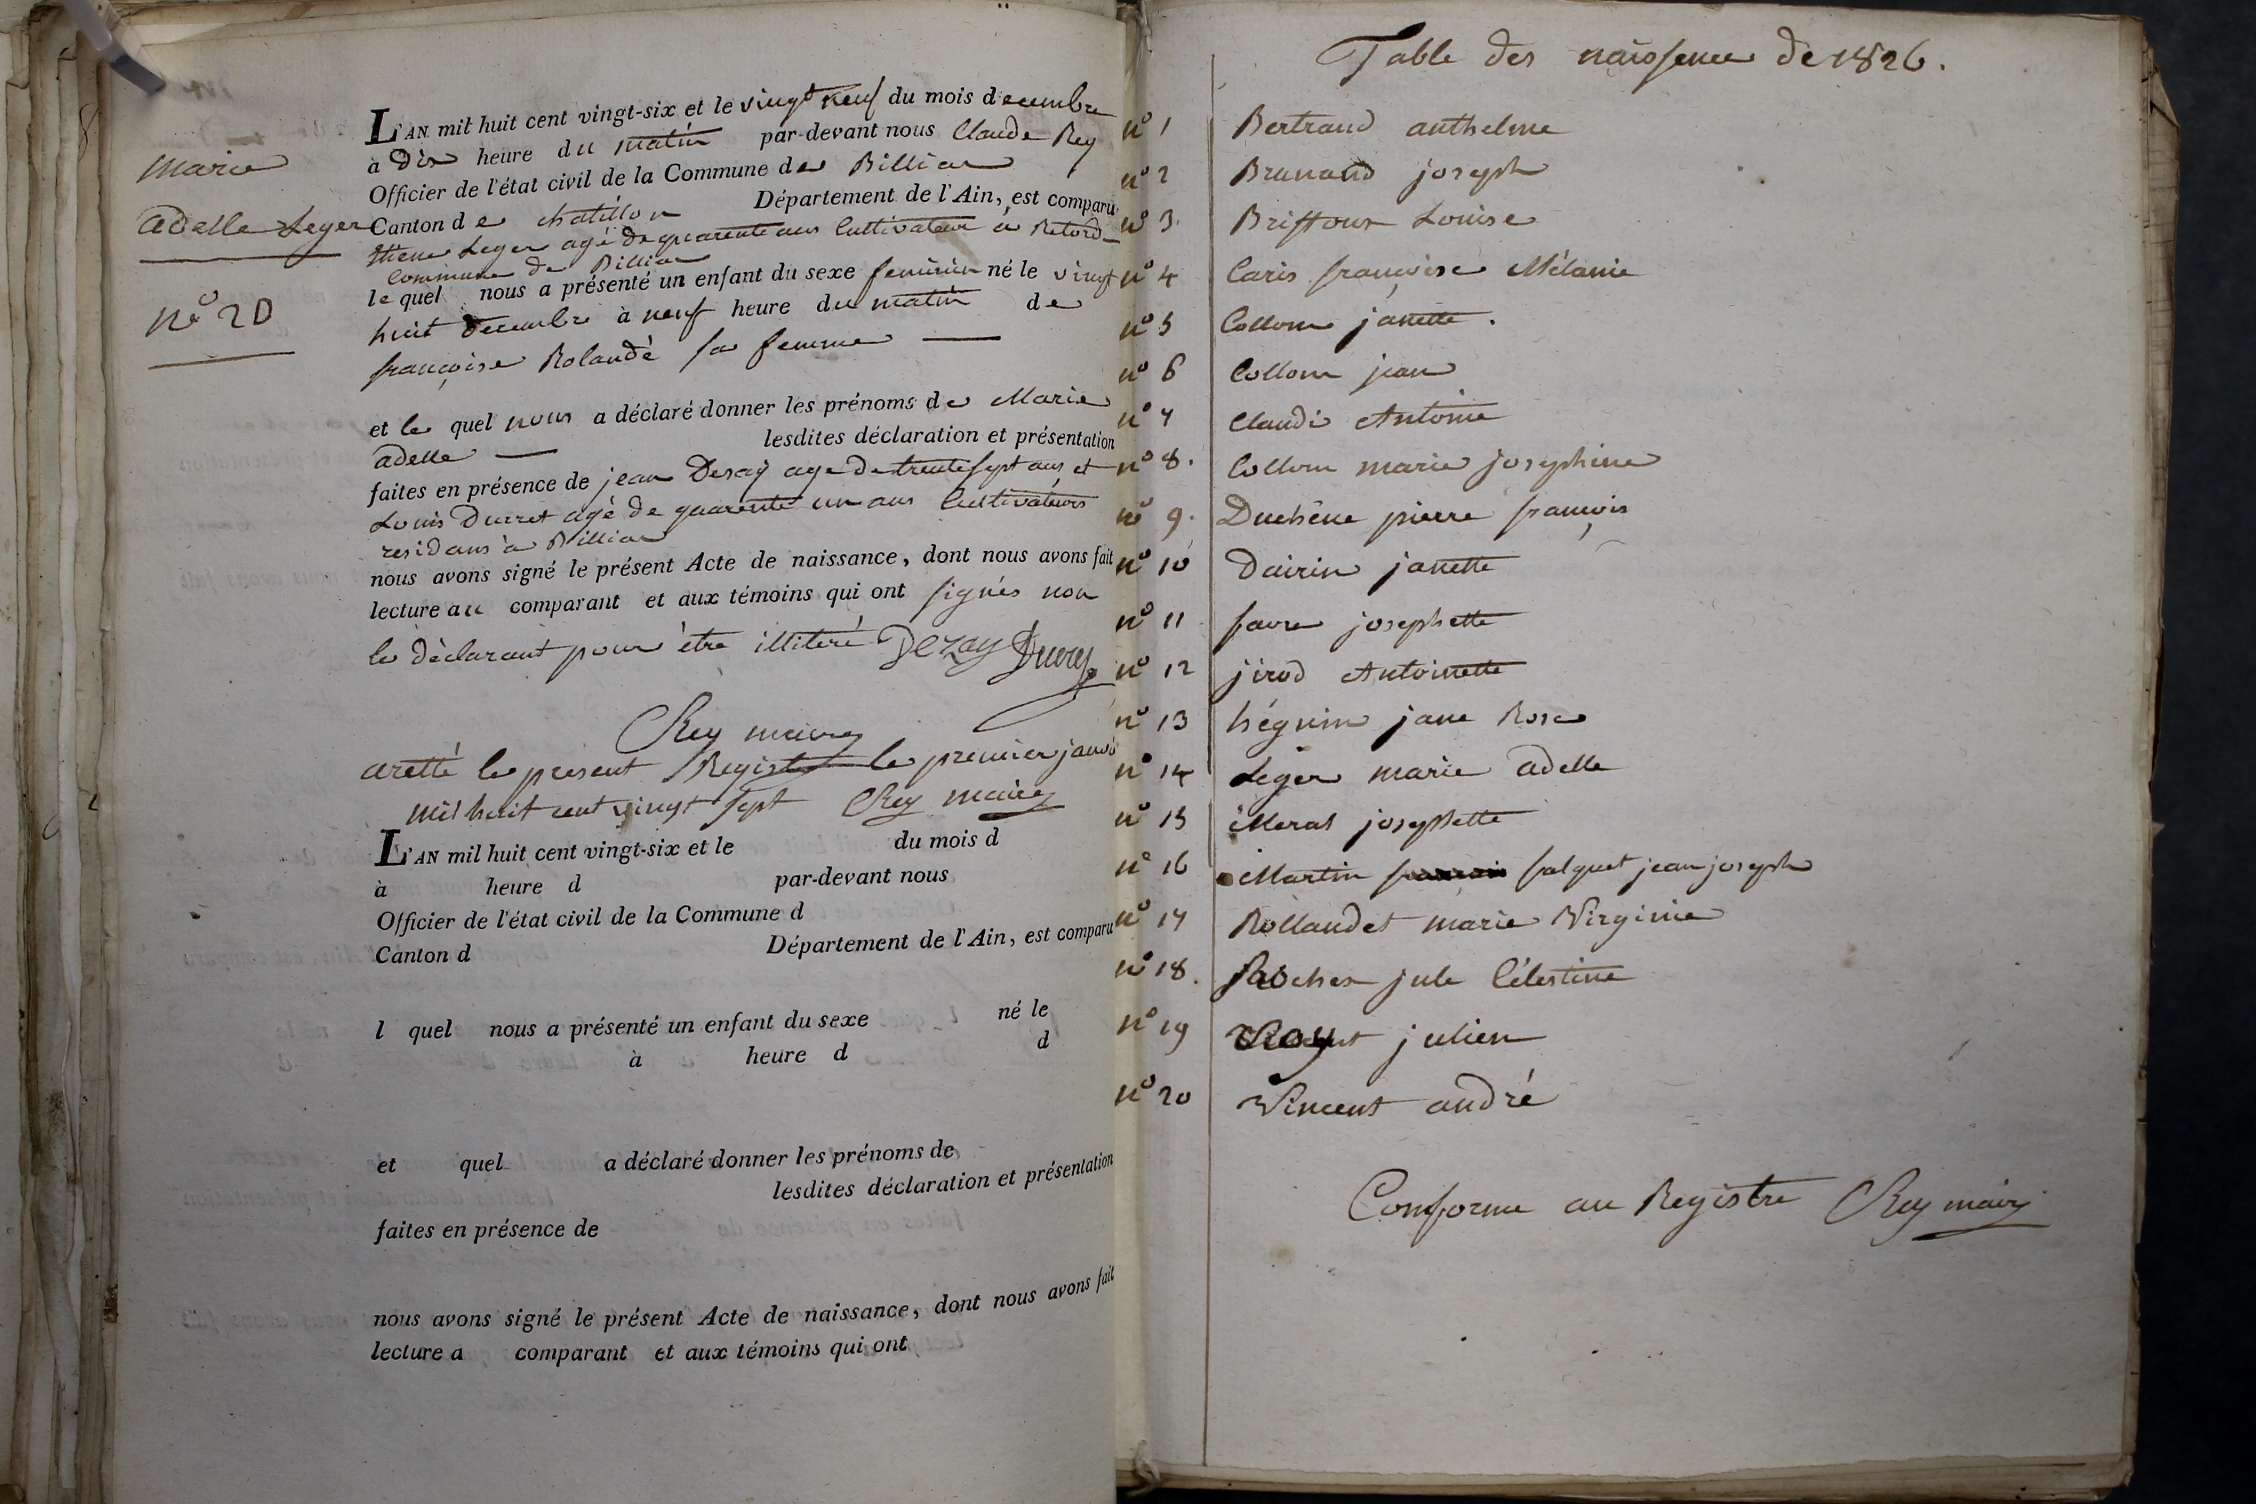 Marie
adelle Leger
n° 20
L'AN mil huit cent vingt-six et le vingt neuf du mois decembre
à dix heure du matin par-devant nous Claude Rey
Officier de l'état civil de la Commune de Billiat
Canton de chatillon Département de l'Ain, est comparu
Leger agé de quarente ans Cultivateur à Retord
Commune de Billiat
le quel nous a présenté un enfant du sexe feminin né le vingt
huit decembre à neuf heure du matin de
françoise Rolandè sa femme
et le quel nous a déclaré donner les prénoms de Marie
adelle lesdites déclaration et présentation
faites en présence de jean Desaÿ age de trente sept ans et
Louis Ducret agé de quarente un ans Cultivateurs
residans à Billiat
nous avons signé le présent Acte de naissance, dont nous avons fait
lecture au comparant et aux témoins qui ont signés non
le dèclarant pour ètre illiteré Dezay Ducret
Rey maire
aretté le present Registre le premier janvi
mil huit cent vingt sept Rey maire
L'AN mil huit cent vingt-six et le du mois d
à heure d par-devant nous
Officier de l'état civil de la Commune d
Canton d Département de l'Ain, est comparu
l quel nous a présenté un enfant du sexe né le
à heure d d
et quel a déclaré donner les prénoms de
lesdites déclaration et présentation
faites en présence de
nous avons signé le présent Acte de naissance, dont nous avons fait
lecture a comparant et aux témoins qui ont
Table des naissence de 1826.
n° 1 Bertrand anthelme
n° 2 Brunand joseph
n° 3. Louise
n° 4 Caris françoise Mélanie
n° 5 Collom janette.
n° 6 Collom jean
n° 7 Claudi Antoine
n° 8. Collom marie josephine
n° 9. Duchêne pierre françois
n° 10 Dairin janette
n° 11 favre josephette
n° 12 jirod Antoinette
n° 13 héguin jane Rose
n° 14 Leger marie adelle
n° 15 Meral josephette
n° 16 Martin falquet jean joseph
n° 17 Rollandet marie Virginie
n° 18. Rochex jule Célestine
n° 19 Roy julien
n° 20 Vincent andré
Conforme au Registre Rey maire